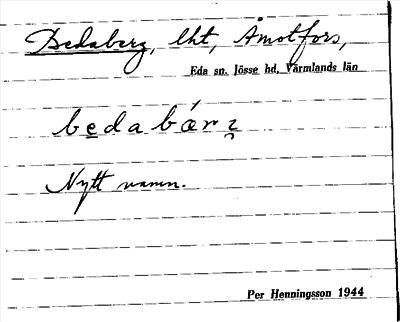 Bedaberg, lht, Åmotfors,
Eda sn. Jösse hd. Värmlands län
Nytt namn.
Per Henningsson 1944